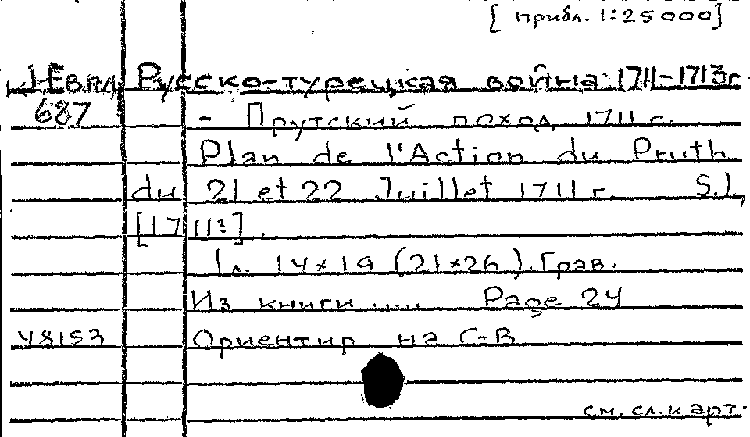 [прибл. 1:25000]
К 1-Евпл Русско-турецкая война 1711-1713г
687 - Прутский поход, 1711 г.
Plan de l'Action du Pruth
du 21 et 22 Juillet 1711 г. S.l,
[1711?].
1 л. 14x19 (21x26). Грав.
Из книги .... Page 24
48153 Ориентир. на С-В
см. сл. карт.